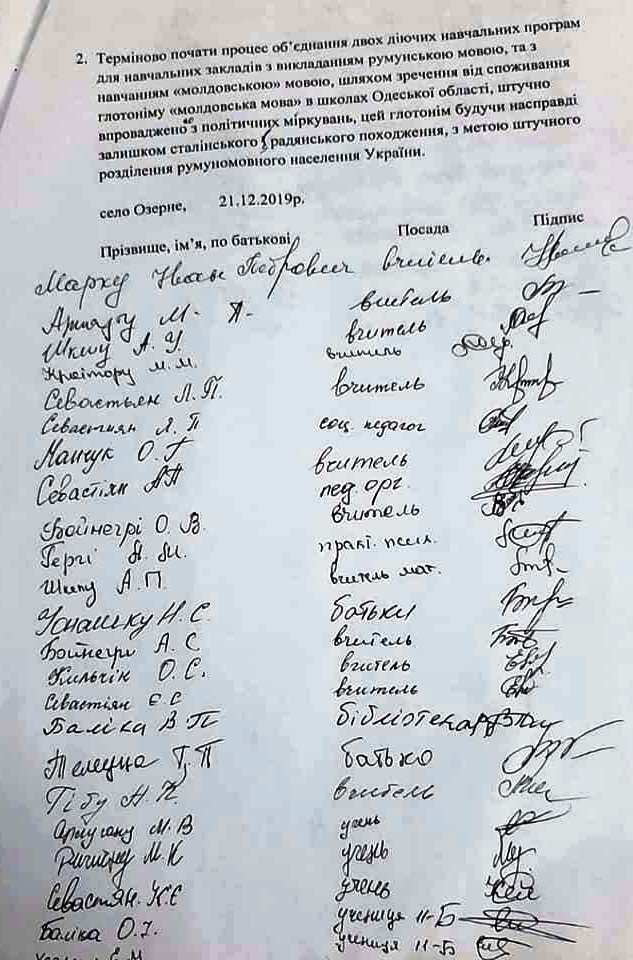 2. Терміново почати процес об’єднання двох діючих навчальних програм
для навчальних закладів з викладанням румунською мовою, та з
навчанням «молдовською» мовою, шляхом зречення від споживання
глотоніму «молдовська мова» в школах Одеської області, штучно
впроваджено з політичних міркувань, цей глотонім будучи насправді
залишком сталінського радянського походження, з метою штучного
розділення румуномовного населення України.
село Озерне, 21.12.2019р.
Прізвище, ім’я, по батькові Посада Підпис
Марку Іван Петрович вчитель.
М. Я. вчитель
Шкипу А. У. вчитель
Кроітору М. М. вчитель
Севастьян Л. П. вчитель
Севастиян Л. П соц. педагог
Манчук О. Г вчитель
Севастіян А П пед. орг.
вчитель
Бойнегрі О. В. практ. псих.
Гергі Я. М.
Шкипу А. П. вчитель мат.
Н. С. батьки
Бойнегри А. С вчитель
Кильчік О. С. вчитель
Севастіян Є. С вчитель
Баліка В П бібліотекар
Телеуца Т. П батько
Гібу Н. К. вчитель
Армугану М. В учень
М. К учень
Севастян. К. Є учень
Баліка О. І. учениця 11-Б
учениця 11-Б